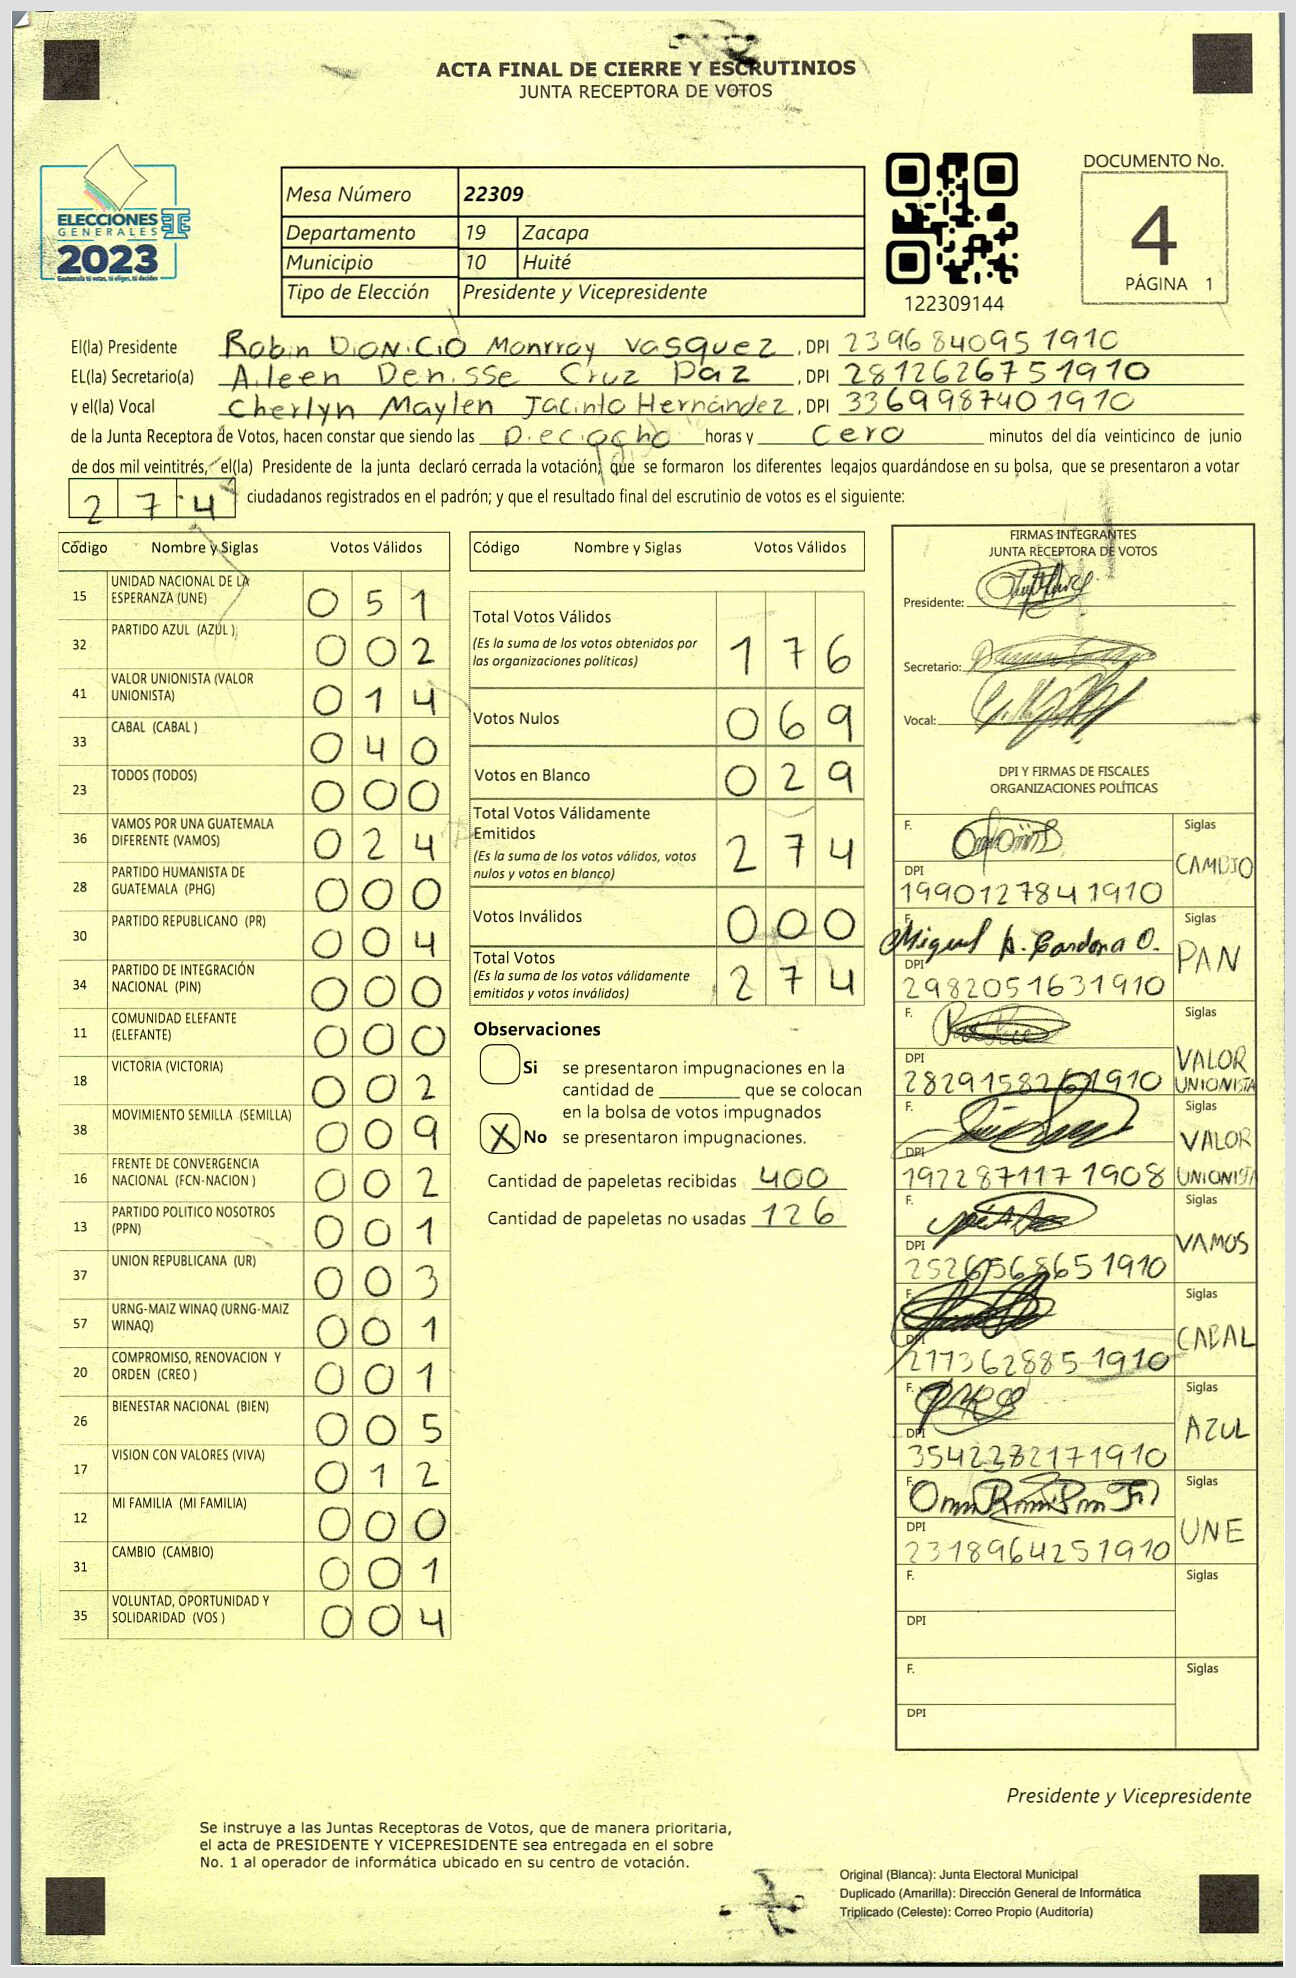 ACTA FINAL DE CIERRE Y ESCRUTINIOS
JUNTA RECEPTORA DE VOTOS
ELECCIONES
GENERALES
2023
Guatemala tú votas, tú eliges, tú decides
Mesa Número 22309
Departamento 19 Zacapa
Municipio 10 Huité
Tipo de Elección Presidente y Vicepresidente
122309144
DOCUMENTO No.
4
PÁGINA 1
El(la) Presidente Robin DIONICIO Monrroy Vasquez, DPI 2396840951910
EL(la) Secretario(a) Aileen Denisse Cruz Paz, DPI 2812626751910
y el(la) Vocal Cherlyn Maylen Jacinto Hernández, DPI 3369987401910
de la Junta Receptora de Votos, hacen constar que siendo las Dieciocho horas y Cero minutos del día veinticinco de junio
de dos mil veintitrés, el(la) Presidente de la junta declaró cerrada la votación; que se formaron los diferentes legajos guardándose en su bolsa, que se presentaron a votar
274 ciudadanos registrados en el padrón; y que el resultado final del escrutinio de votos es el siguiente:
Código Nombre y Siglas Votos Válidos
15 UNIDAD NACIONAL DE LA ESPERANZA (UNE) 051
32 PARTIDO AZUL (AZUL ) 002
41 VALOR UNIONISTA (VALOR UNIONISTA) 014
33 CABAL (CABAL ) 040
23 TODOS (TODOS) 000
36 VAMOS POR UNA GUATEMALA DIFERENTE (VAMOS) 024
28 PARTIDO HUMANISTA DE GUATEMALA (PHG) 000
30 PARTIDO REPUBLICANO (PR) 004
34 PARTIDO DE INTEGRACIÓN NACIONAL (PIN) 000
11 COMUNIDAD ELEFANTE (ELEFANTE) 000
18 VICTORIA (VICTORIA) 002
38 MOVIMIENTO SEMILLA (SEMILLA) 009
16 FRENTE DE CONVERGENCIA NACIONAL (FCN-NACION ) 002
13 PARTIDO POLITICO NOSOTROS (PPN) 001
37 UNION REPUBLICANA (UR) 003
57 URNG-MAIZ WINAQ (URNG-MAIZ WINAQ) 001
20 COMPROMISO, RENOVACION Y ORDEN (CREO ) 001
26 BIENESTAR NACIONAL (BIEN) 005
17 VISION CON VALORES (VIVA) 012
12 MI FAMILIA (MI FAMILIA) 000
31 CAMBIO (CAMBIO) 001
35 VOLUNTAD, OPORTUNIDAD Y SOLIDARIDAD (VOS ) 004
Código Nombre y Siglas Votos Válidos
Total Votos Válidos
(Es la suma de los votos obtenidos por las organizaciones políticas) 176
Votos Nulos 069
Votos en Blanco 029
Total Votos Válidamente Emitidos
(Es la suma de los votos válidos, votos nulos y votos en blanco) 274
Votos Inválidos 000
Total Votos
(Es la suma de los votos válidamente emitidos y votos inválidos) 274
Observaciones
Si se presentaron impugnaciones en la
cantidad de ________ que se colocan
en la bolsa de votos impugnados
X No se presentaron impugnaciones.
Cantidad de papeletas recibidas 400
Cantidad de papeletas no usadas 126
FIRMAS INTEGRANTES
JUNTA RECEPTORA DE VOTOS
Presidente:
Secretario:
Vocal:
DPI Y FIRMAS DE FISCALES
ORGANIZACIONES POLÍTICAS
F. Siglas
DPI 1990127841910 CAMBIO
F. Miguel A. Cardona O. Siglas
DPI 2982051631910 PAN
F. Siglas
DPI 2829158261910 VALOR UNIONISTA
F. Siglas
DPI 1922871171908 VALOR UNIONISTA
F. Siglas
DPI 2526568651910 VAMOS
F. Siglas
DPI 2173628851910 CABAL
F. Siglas
DPI 3542382171910 AZUL
F. Siglas
DPI 2318964251910 UNE
F. Siglas
DPI
F. Siglas
DPI
Presidente y Vicepresidente
Se instruye a las Juntas Receptoras de Votos, que de manera prioritaria,
el acta de PRESIDENTE Y VICEPRESIDENTE sea entregada en el sobre
No. 1 al operador de informática ubicado en su centro de votación.
Original (Blanca): Junta Electoral Municipal
Duplicado (Amarilla): Dirección General de Informática
Triplicado (Celeste): Correo Propio (Auditoría)